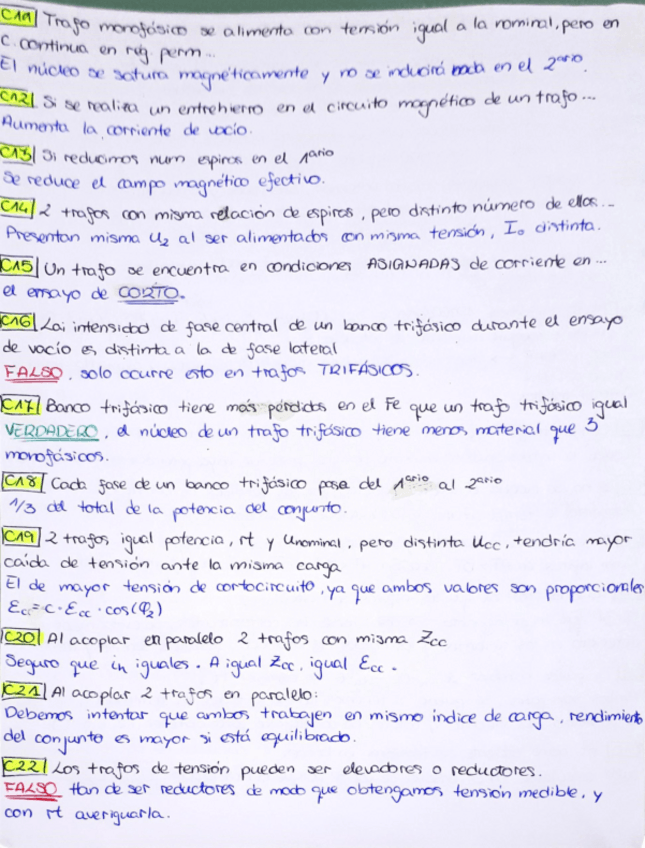 C11 Trafo monofásico se alimenta con tensión igual a la nominal, pero en
C. continua en rég perm...
El núcleo se satura magnéticamente y no se inducirá nada en el 2ario.
C12 Si se realiza un entrehierro en el circuito magnético de un trafo...
Aumenta la corriente de vacío.
C13 Si reducimos num espiras en el 1ario
Se reduce el campo magnético efectivo.
C14 2 trafos con misma relación de espiras, pero distinto número de ellas...
Presentan misma U2 al ser alimentados con misma tensión, Io distinta.
C15 Un trafo se encuentra en condiciones ASIGNADAS de corriente en ...
el ensayo de CORTO.
C16 Lai intensidad de fase central de un banco trifásico durante el ensayo
de vacío es distinta a la de fase lateral
FALSO, solo ocurre esto en trafos TRIFÁSICOS.
C17 Banco trifásico tiene más pérdidas en el Fe que un trafo trifásico igual
VERDADERO, el núcleo de un trafo trifásico tiene menos material que 3
monofásicos.
C18 Cada fase de un banco trifásico pasa del 1ario al 2ario
1/3 del total de la potencia del conjunto.
C19 2 trafos, igual potencia, rt y Unominal, pero distinta Ucc, tendría mayor
caída de tensión ante la misma carga
El de mayor tensión de cortocircuito, ya que ambos valores son proporcionales
Ec=C·Ecc·cos(φ2)
C20 Al acoplar en paralelo 2 trafos con misma Zcc
Seguro que in iguales. A igual Zcc, igual Ecc.
C21 Al acoplar 2 trafos en paralelo:
Debemos intentar que ambos trabajen en mismo índice de carga, rendimiento
del conjunto es mayor si está equilibrado.
C22 Los trafos de tensión pueden ser elevadores o reductores.
FALSO Han de ser reductores de modo que obtengamos tensión medible, y
con rt averiguarla.